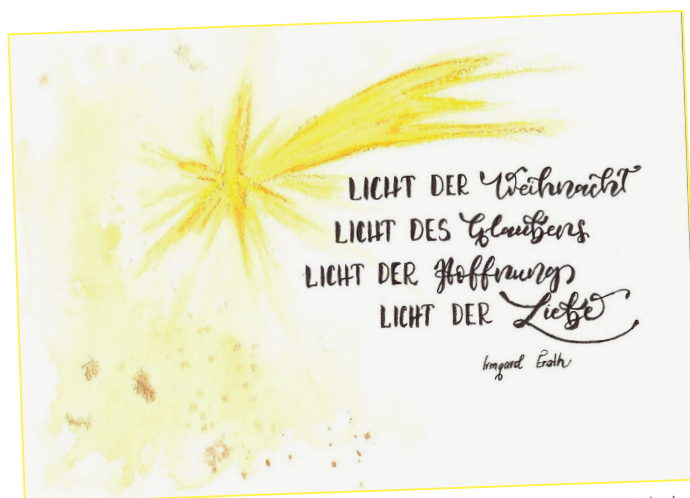 LICHT DER Weihnacht
LICHT DES Glaubens
LICHT DER Hoffnung
LICHT DER Liebe
Irmgard Erath